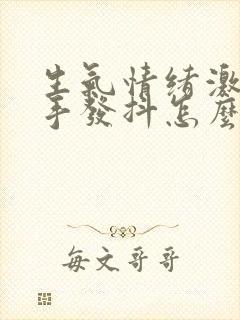 生氣情緒激
手發抖怎麼
每文哥哥